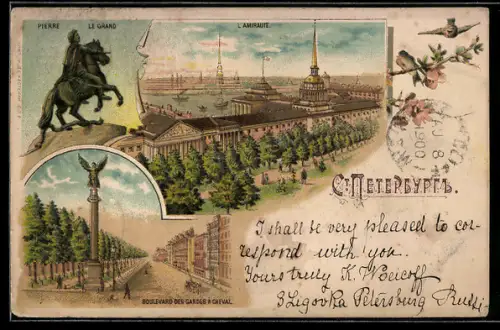 PIERRE LE GRAND
L'AMIRAUTÉ.
С.ПЕТЕРБУРГЪ.
8
1900
I shall be very pleased to cor-
respond with you.
Yours truly K.
8 Ligovka Petersburg
BOULEVARD DES GARDES À CHEVAL.